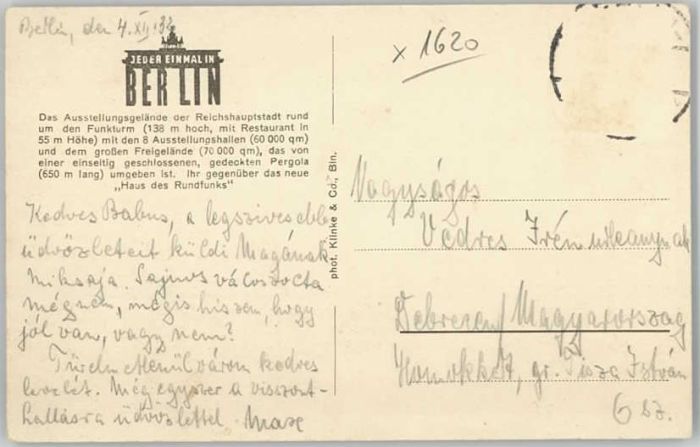 Berlin, den 4. XII. 32
JEDER EINMAL IN
BERLIN
Das Ausstellungsgelände der Reichshauptstadt rund
um den Funkturm (138 m hoch, mit Restaurant in
55 m Höhe) mit den 8 Ausstellungshallen (60 000 qm)
und dem großen Freigelände (70 000 qm), das von
einer einseitig geschlossenen, gedeckten Pergola
(650 m lang) umgeben ist. Ihr gegenüber das neue
„Haus des Rundfunks“
Kedves Babus, a legszivesebb
üdvözleteit küldi Magának
Miksája. Sajnos válasz
mégnem, mégis hiszem, hogy
jól van, vagy nem?
Türelmetlenül várom kedves
levelét. Mégegyszer a viszont-
hallásra üdvözlettel Maxe
phot. Klinke & Co., Bln.
x 1620
Nagyságos
Vedres Irén
Debrecen Magyarország
Homokkert, gr. Tisza István
6 sz.